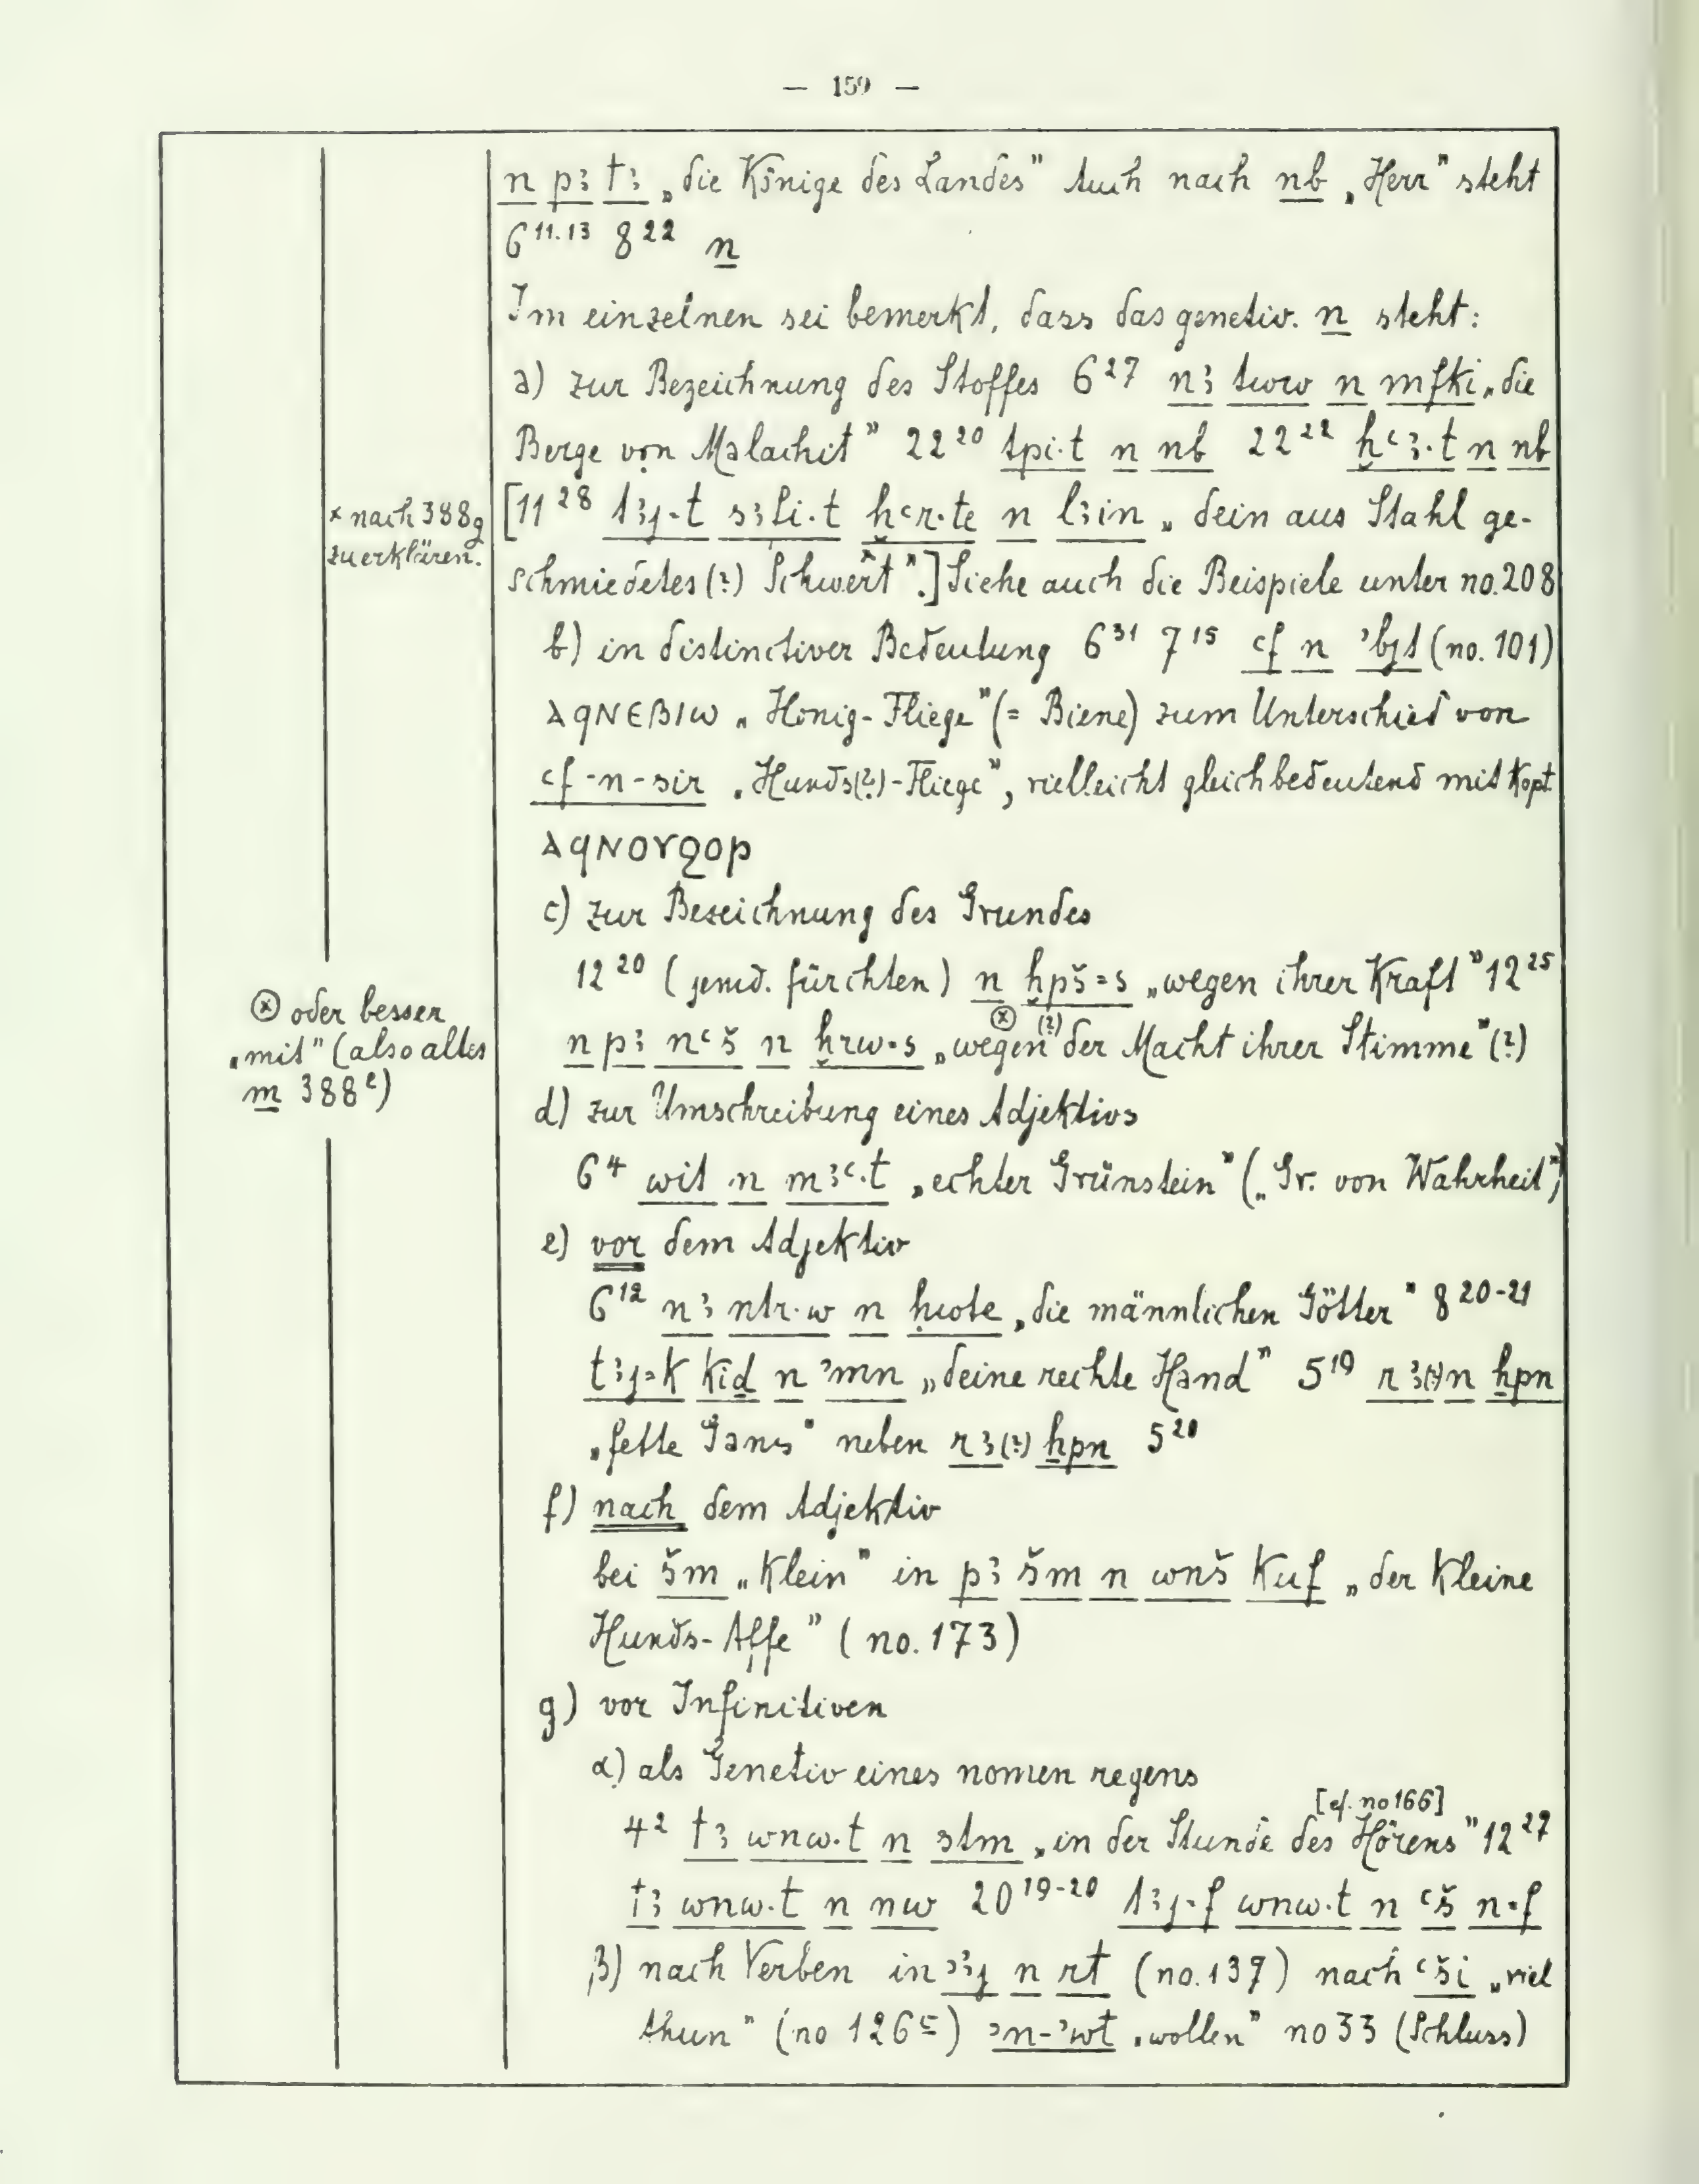 — 159 —
n pꜣ tꜣ „die Könige des Landes" Auch nach nb „Herr" steht
6¹¹·¹³ 8²² n
Im einzelnen sei bemerkt, dass das genetiv. n steht:
a) zur Bezeichnung des Stoffes 6²⁷ nꜣ tww n mfki „die
Berge von Malachit" 22²⁰ tpi·t n nb 22²² ḫꜥꜣ·t n nb
× nach 388g
zu erklären.
[11²⁸ tꜣj-t sꜣfi·t ḫꜥr·te n lꜣin „dein aus Stahl ge-
schmiedetes(?) Schwert ×".] Siehe auch die Beispiele unter no. 208
b) in distinctiver Bedeutung 6³¹ 7¹⁵ ꜥf n ʾbjt (no. 101)
ⲁϥⲛⲉⲃⲓⲱ „Honig-Fliege" (= Biene) zum Unterschied von
ꜥf-n-sir „Hunds(?)-Fliege", vielleicht gleichbedeutend mit Kopt.
ⲁϥⲛⲟⲩϩⲟⲣ
c) zur Bezeichnung des Grundes
12²⁰ (jemd. fürchten) n ḫpš=s „wegen ihrer Kraft" 12²⁵
⊗ oder besser
„mit" (also altes
m 388ᵉ)
n pꜣ nꜥš n ḫrw=s „wegen ⊗ (?) der Macht ihrer Stimme" (?)
d) zur Umschreibung eines Adjektivs
6⁴ wit n mꜣꜥ·t „echter Grünstein" („Gr. von Wahrheit")
e) vor dem Adjektiv
6¹² nꜣ ntr·w n ḥwote „die männlichen Götter" 8²⁰⁻²¹
tꜣj=k kid n ʾmn „deine rechte Hand" 5¹⁹ rꜣ(?) n ẖpn
„fette Gans" neben rꜣ(?) ẖpn 5²⁰
f) nach dem Adjektiv
bei šm „klein" in pꜣ šm n wnš kuf „der kleine
Hunds-Affe" (no. 173)
g) vor Infinitiven
α) als Genetiv eines nomen regens
[cf. no 166]
4² tꜣ wnw·t n stm „in der Stunde des Hörens" 12²⁷
tꜣ wnw·t n nw 20¹⁹⁻²⁰ tꜣj=f wnw·t n ꜥš n=f
β) nach Verben in ʾꜣj n rt (no. 137) nach ꜥši „viel
thun" (no 126ᶜ) ʾn-ʾwt „wollen" no 33 (Schluss)